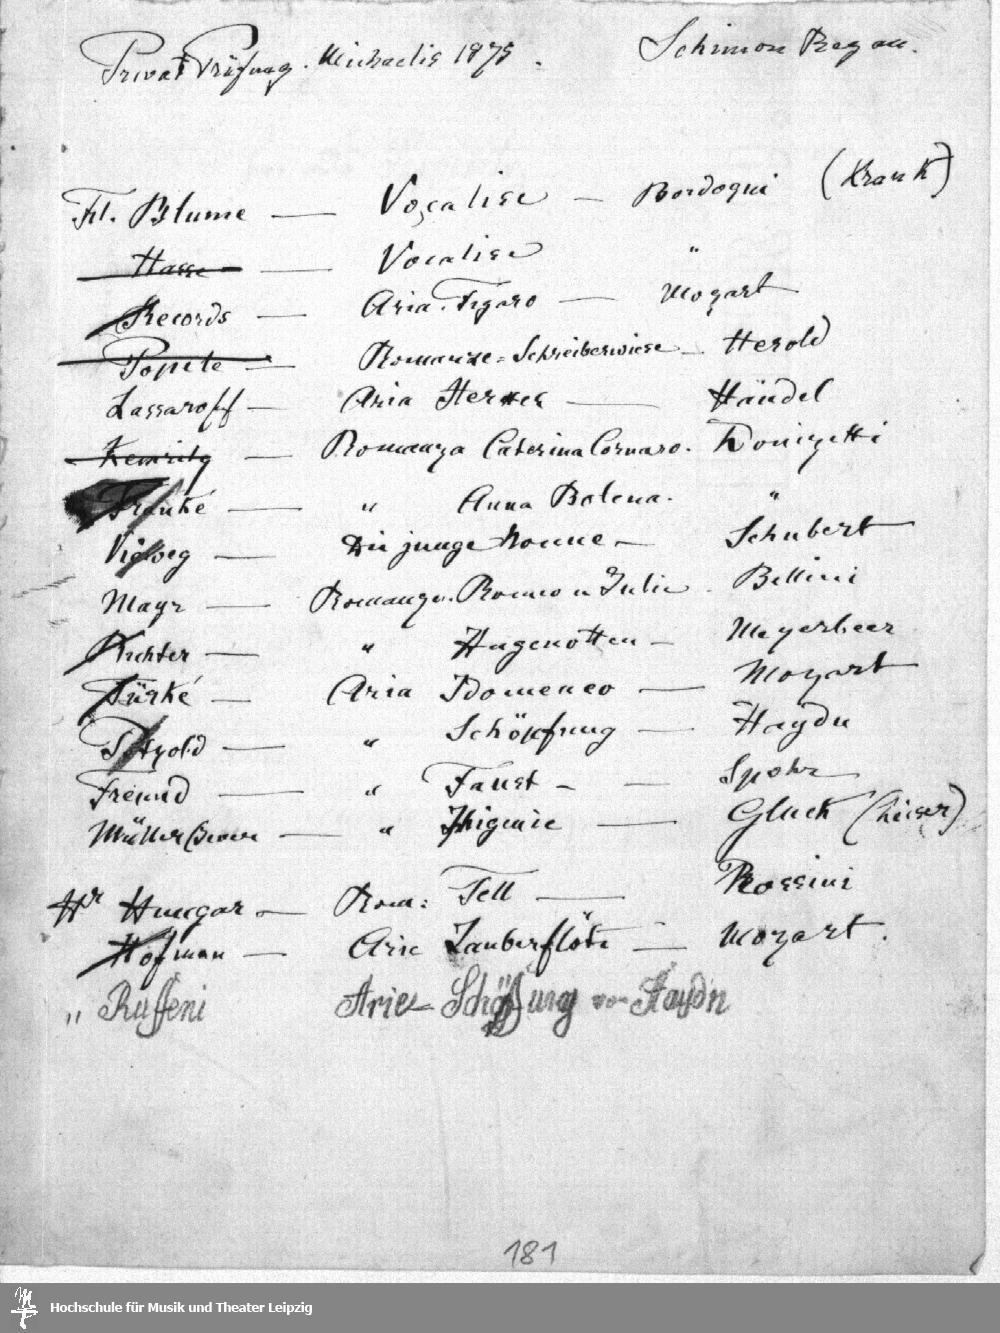 Privat Prüfung. Michaelis 1875. Schimon Regan.
Frl. Blume — Vocalise — Bordogni (Krank)
Hasse — Vocalise "
Records — Aria. Figaro — Mozart
— Romanze = Schreiberwiese — Herold
Lassaroff — Aria — Händel
— Romanza Caterina Cornaro. Donizetti
Franke — " Anna Bolena. "
Vieweg — Die junge Nonne — Schubert
Mayr — Romanze. Romeo u Julie. Bellini
Richter — " Hugenotten — Meyerbeer
Türke — Aria Idomeneo — Mozart
Petzold — " Schöpfung — Haydn
Freund — " Faust — Spohr
Müller — " Iphigenie — Gluck
Hr Hungar — Rom: Tell — Rossini
Hofman — Arie Zauberflöte — Mozart.
" Ruffeni Arie Schöpfung von Haydn
181
Hochschule für Musik und Theater Leipzig